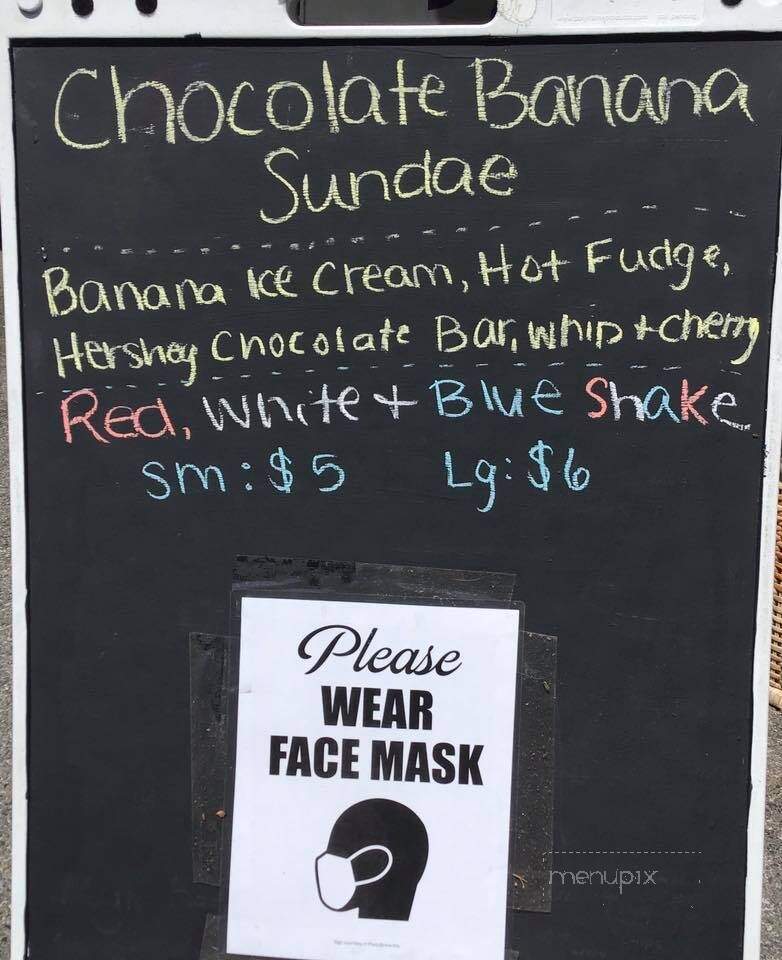 Chocolate Banana
Sundae
Banana Ice Cream, Hot Fudge,
Hershey Chocolate Bar, whip + cherry
Red, White + Blue Shake
Sm: $5 Lg: $6
Please
WEAR
FACE MASK
menupix